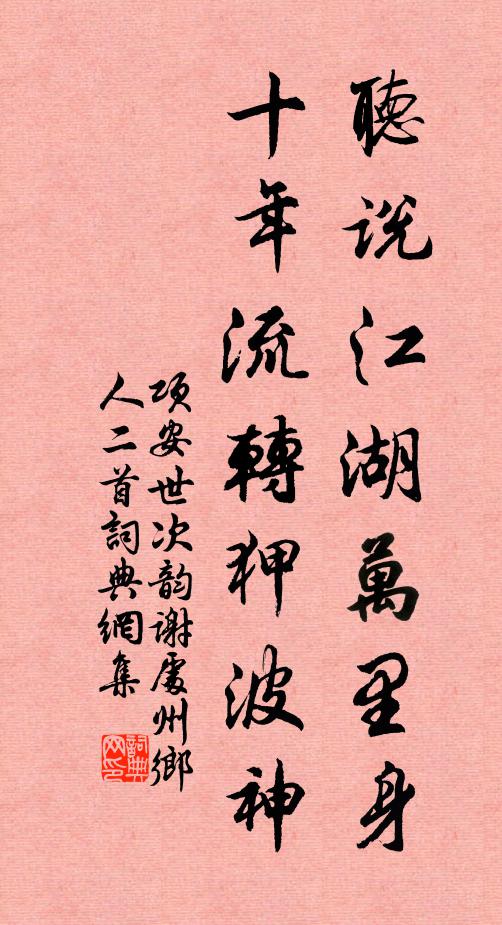 聽説江湖萬里身
十年流轉狎波神
項安世次韵謝處州鄉
人二首詞典網集
詞典
网印